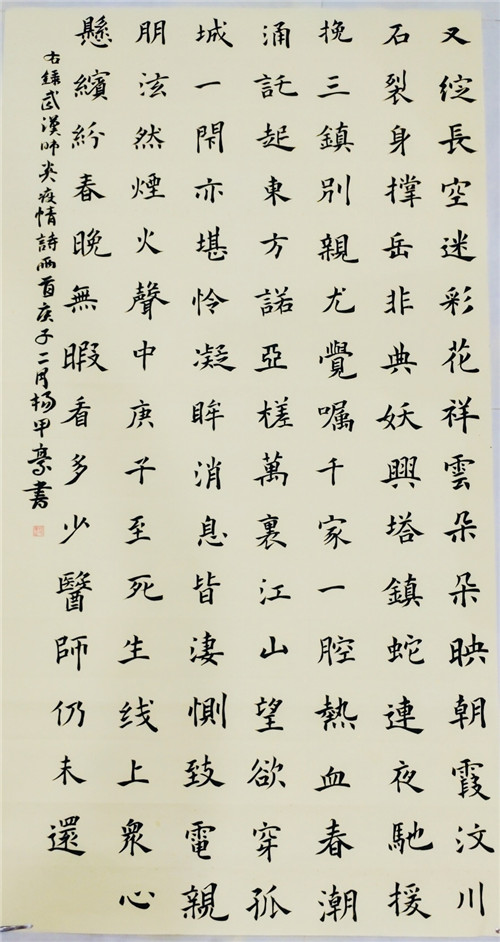 又綻長空迷彩花祥雲朵朵映朝霞汶川
石裂身撐岳非典妖興塔鎮蛇連夜馳援
挽三鎮別親尤覺囑千家一腔熱血春潮
涌託起東方諾亞槎萬裏江山望欲穿孤
城一閇亦堪怜凝眸消息皆淒惻致電親
朋泫然煙火聲中庚子至死生线上衆心
懸繽紛春晚無暇看多少醫師仍未還
右録武漢肺炎疫情詩兩首庚子二月楊甲豪書